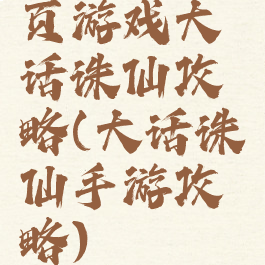 页游戏大
话诛仙攻
略(大话诛
仙手游攻
略)